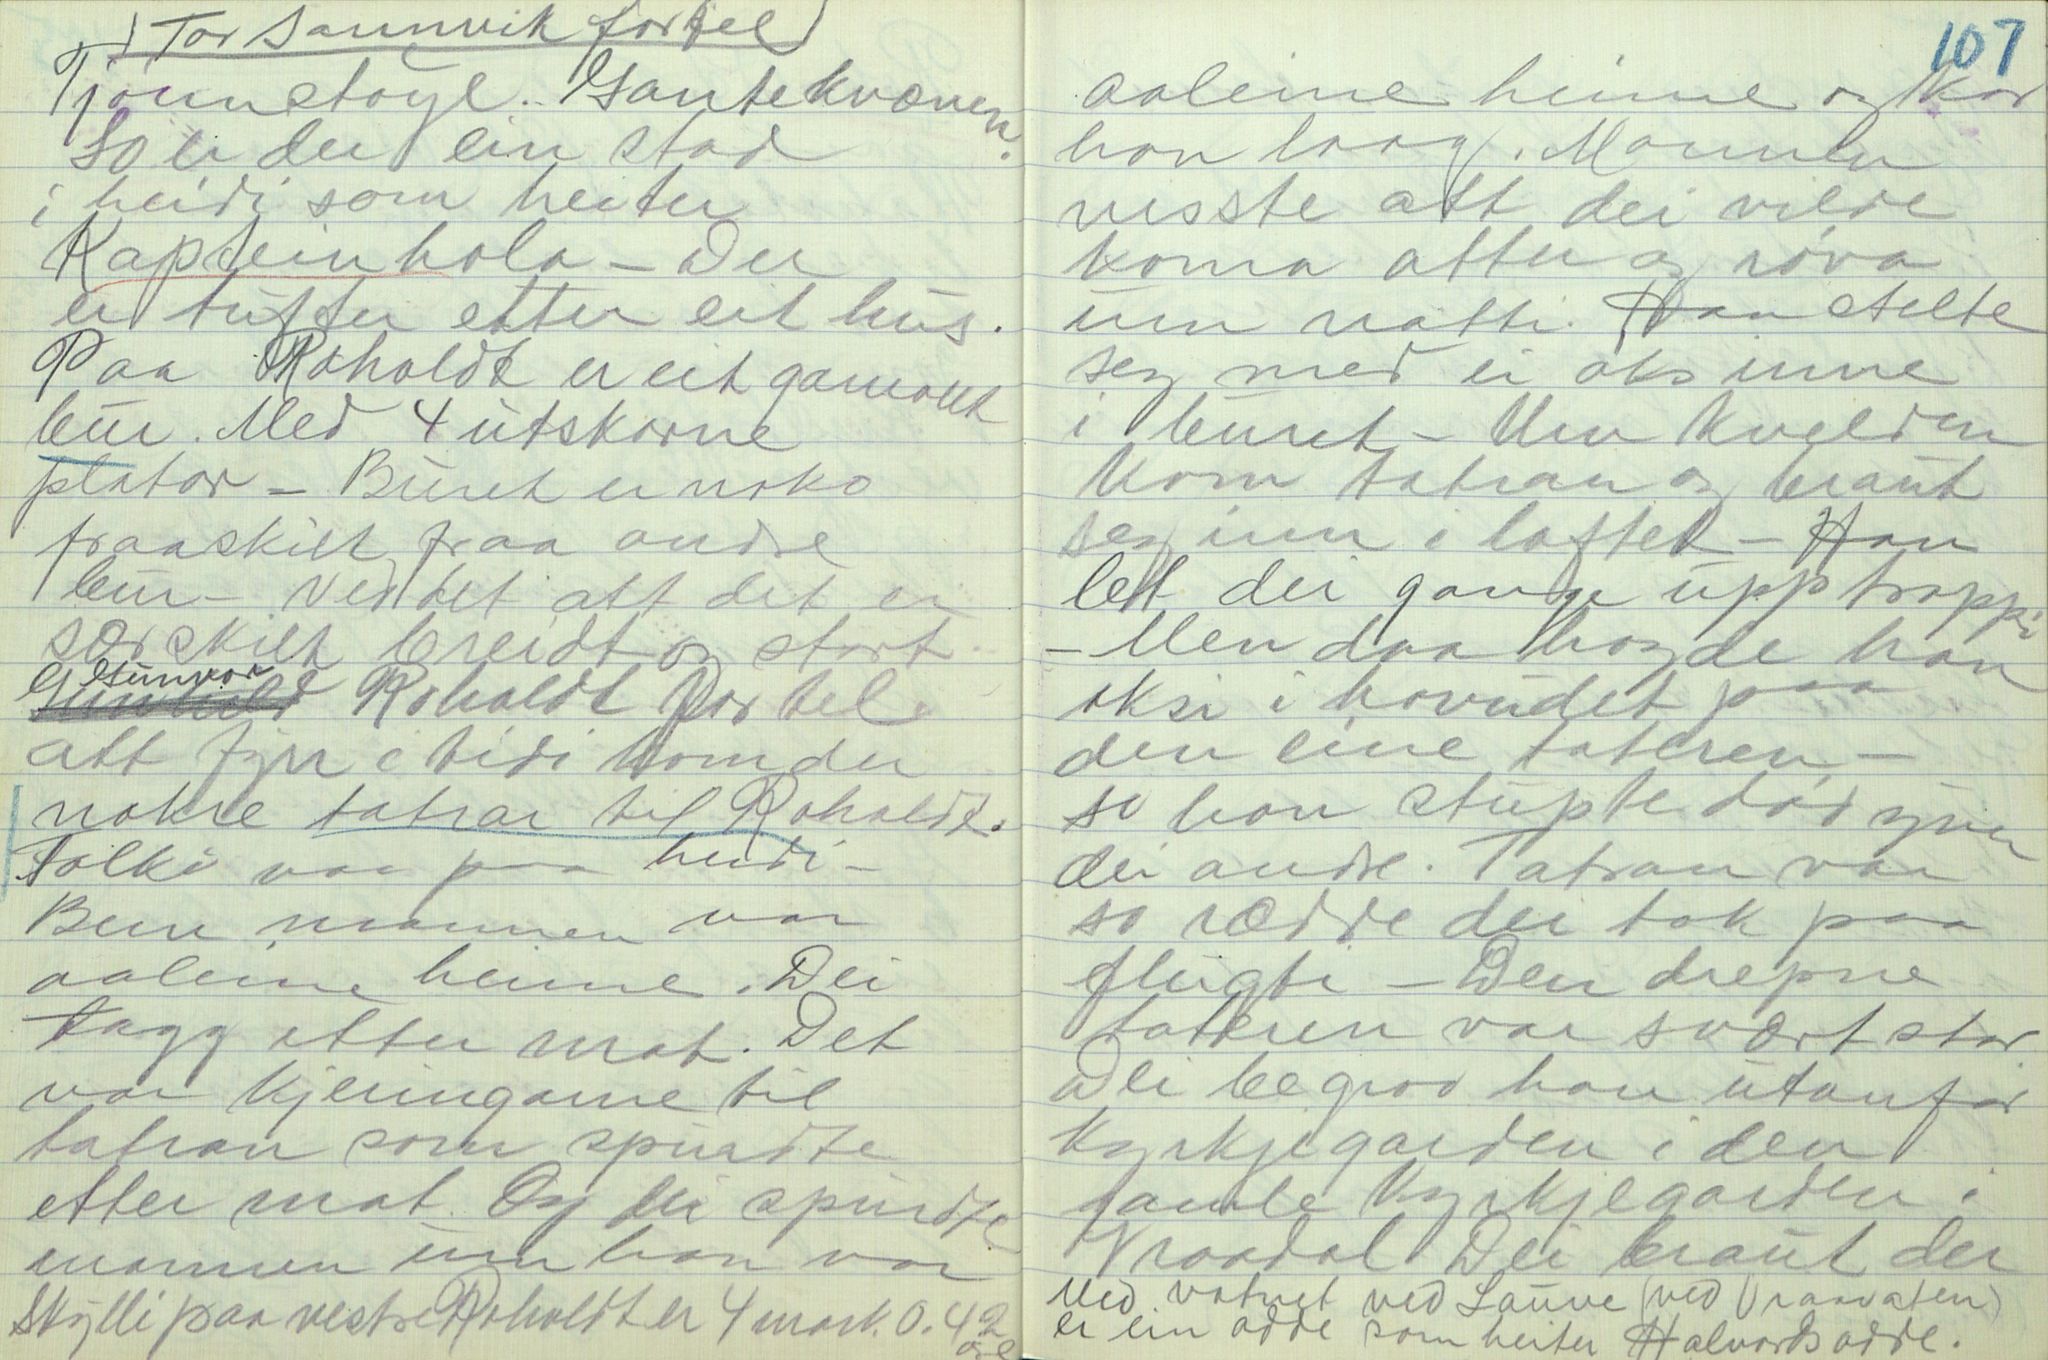 Tor Saunvik fortel
Tjønnstøyl. Gantekvænen.
So er der ein stad
i heidi som heiter
Kapteinhola – Der
er tufter etter eit hus.
Paa Roholdt er eit gamallt
bur. Med 4 utskorne
plator – Buret er noko
fraaskilt fraa andre
bur – ved det att det er
særskilt breidt og stort.
Gunvor Roholdt fortel
att fyrr i tidi kom der
nokre tatrar til Roholdt.
Folki var paa heidi –
Bere mannen var
aaleine heime. Dei
tagg etter mat. Det
var kjeringane til
tatran som spurdte
etter mat. Og dei spurdte
mannen um han var
Skylli paa vestre Roholdt er 4 mark. 0. 42
øre
107
aaleine heime og kor
han laag. Mannen
visste att dei vilde
koma atter og røva
um natti. Han stelte
seg med ei øks inne
i buret – Um kvelden
kom tatran og braut
seg inn i loftet – Han
let dei gange upp trappi
– Men daa hogde han
øksi i hovudet paa
den eine tateren –
so han stupte død yver
dei andre. Tatran var
so rædde dei tok paa
flugti – Den drepne
tateren var svært stor
Dei begrov han utanfor
kyrkjegarden i den
gamle kyrkjegarden i
Vraadal Dei braut der
Med vatnet ved Lauve (ved Vraavaten)
er ein odde som heiter Halvordsodde.